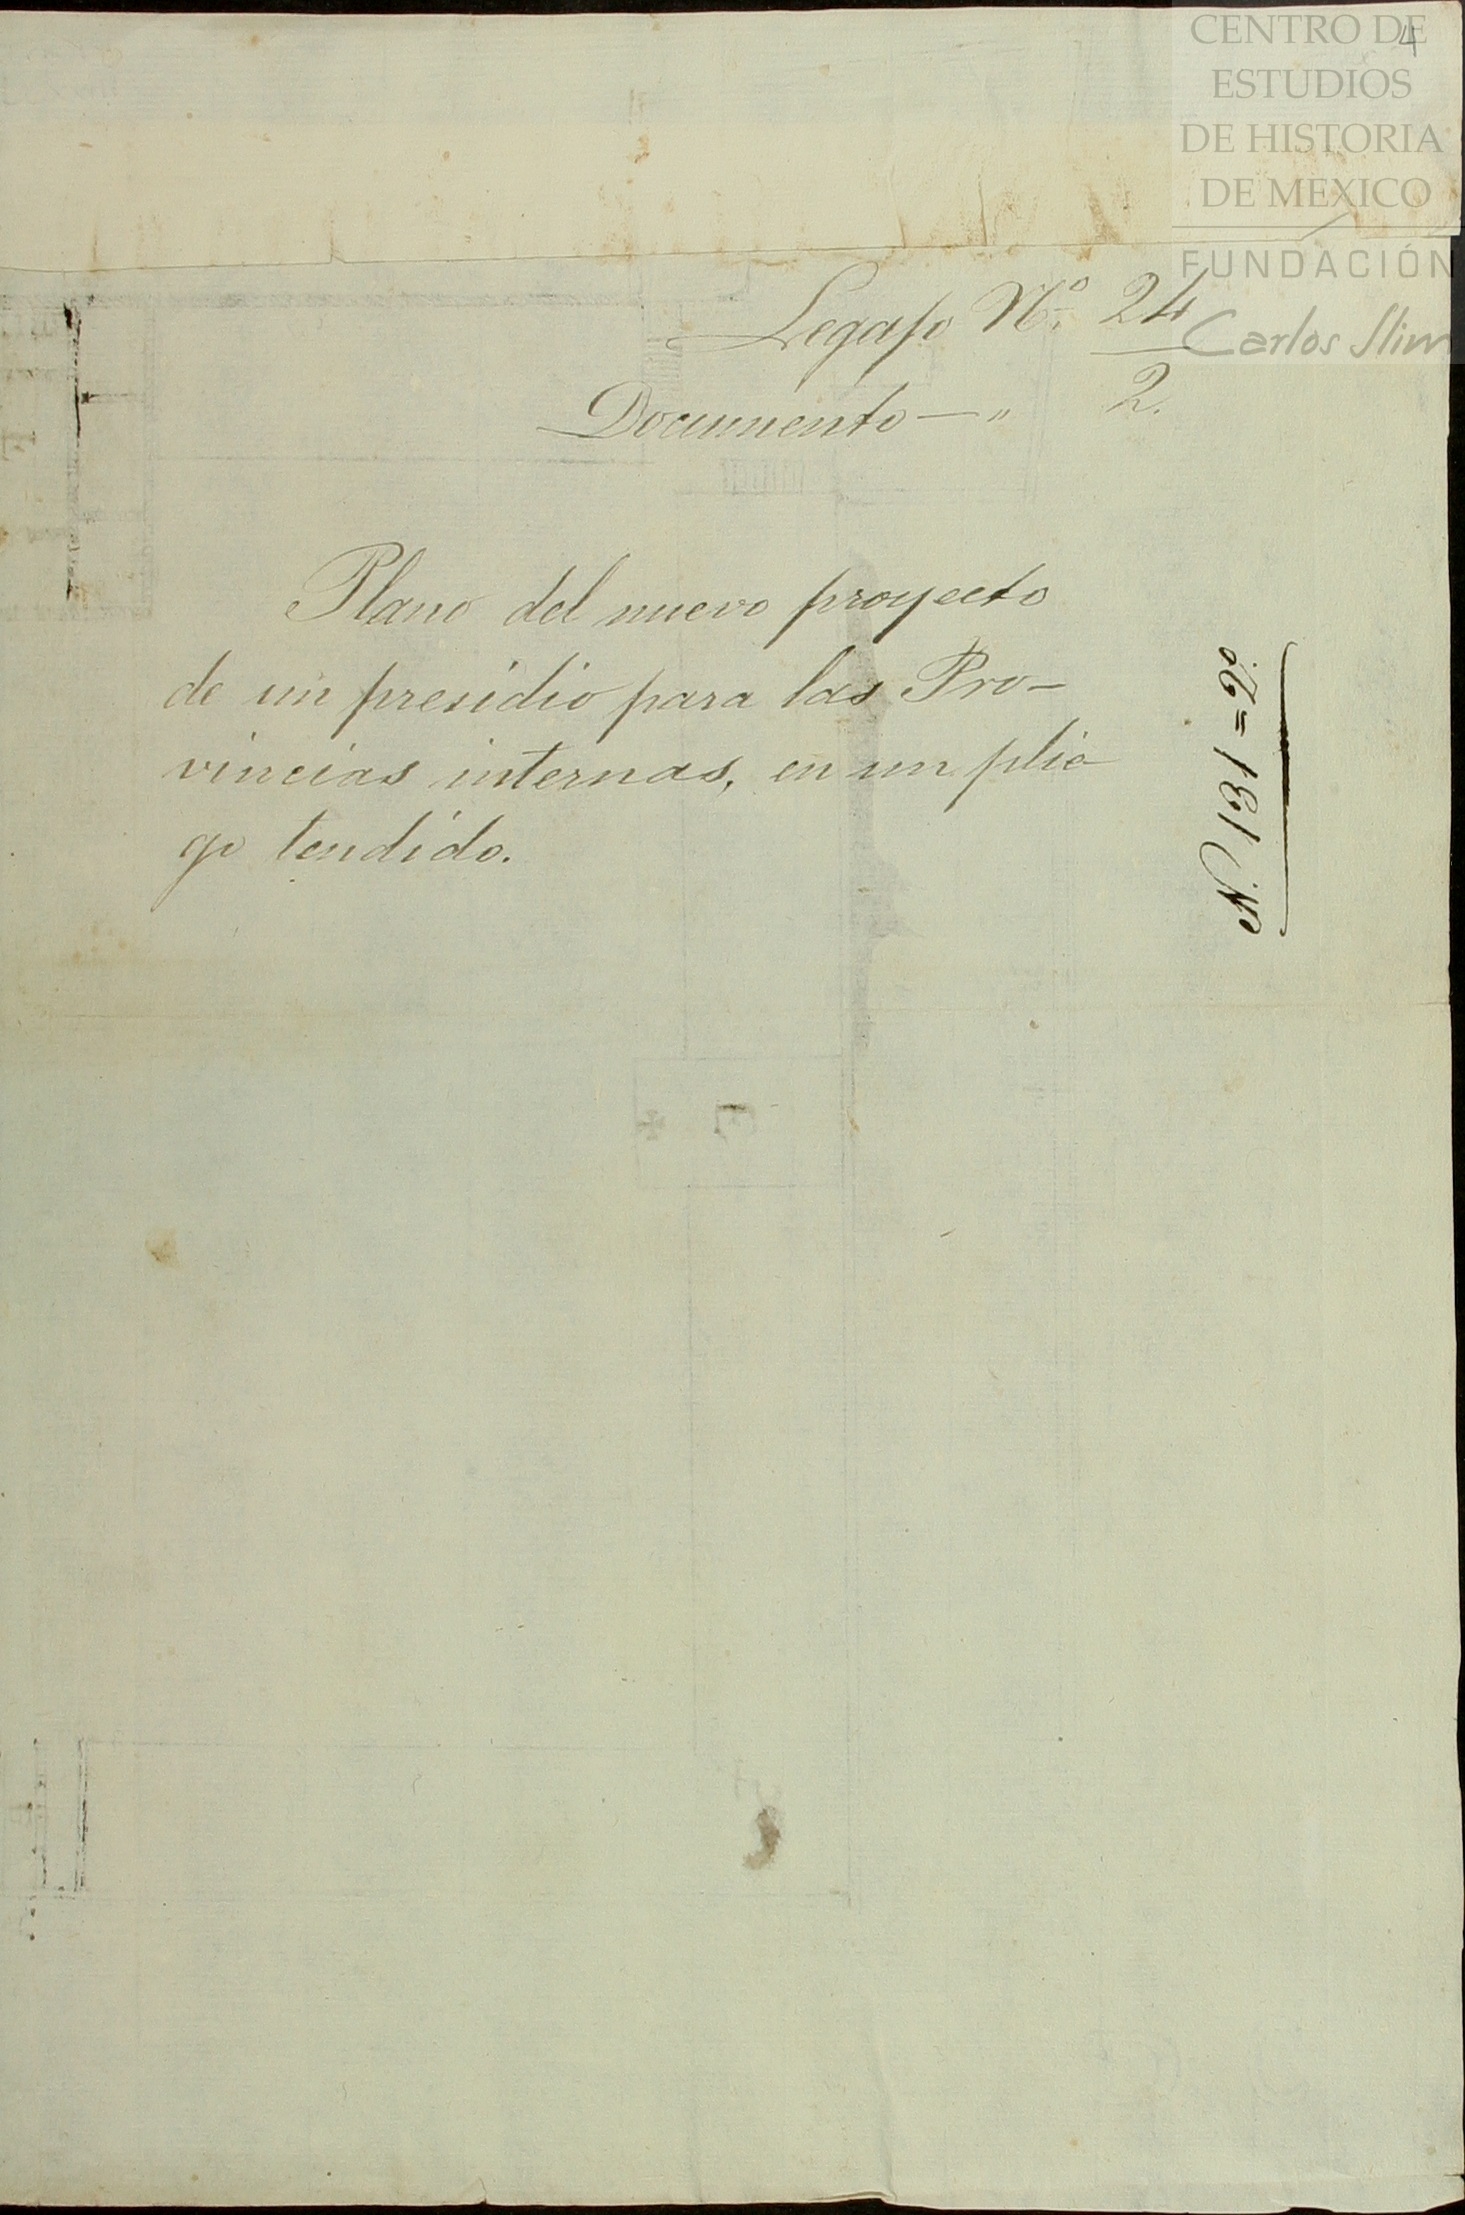 4
CENTRO DE
ESTUDIOS
DE HISTORIA
DE MEXICO
FUNDACIÓN
Carlos Slim
Legajo Nº. 24
Documento — " 2.
Plano del nuevo proyecto
de un presidio para las Pro-
vincias internas, en un plie-
go tendido.
Nº 131 = 2º